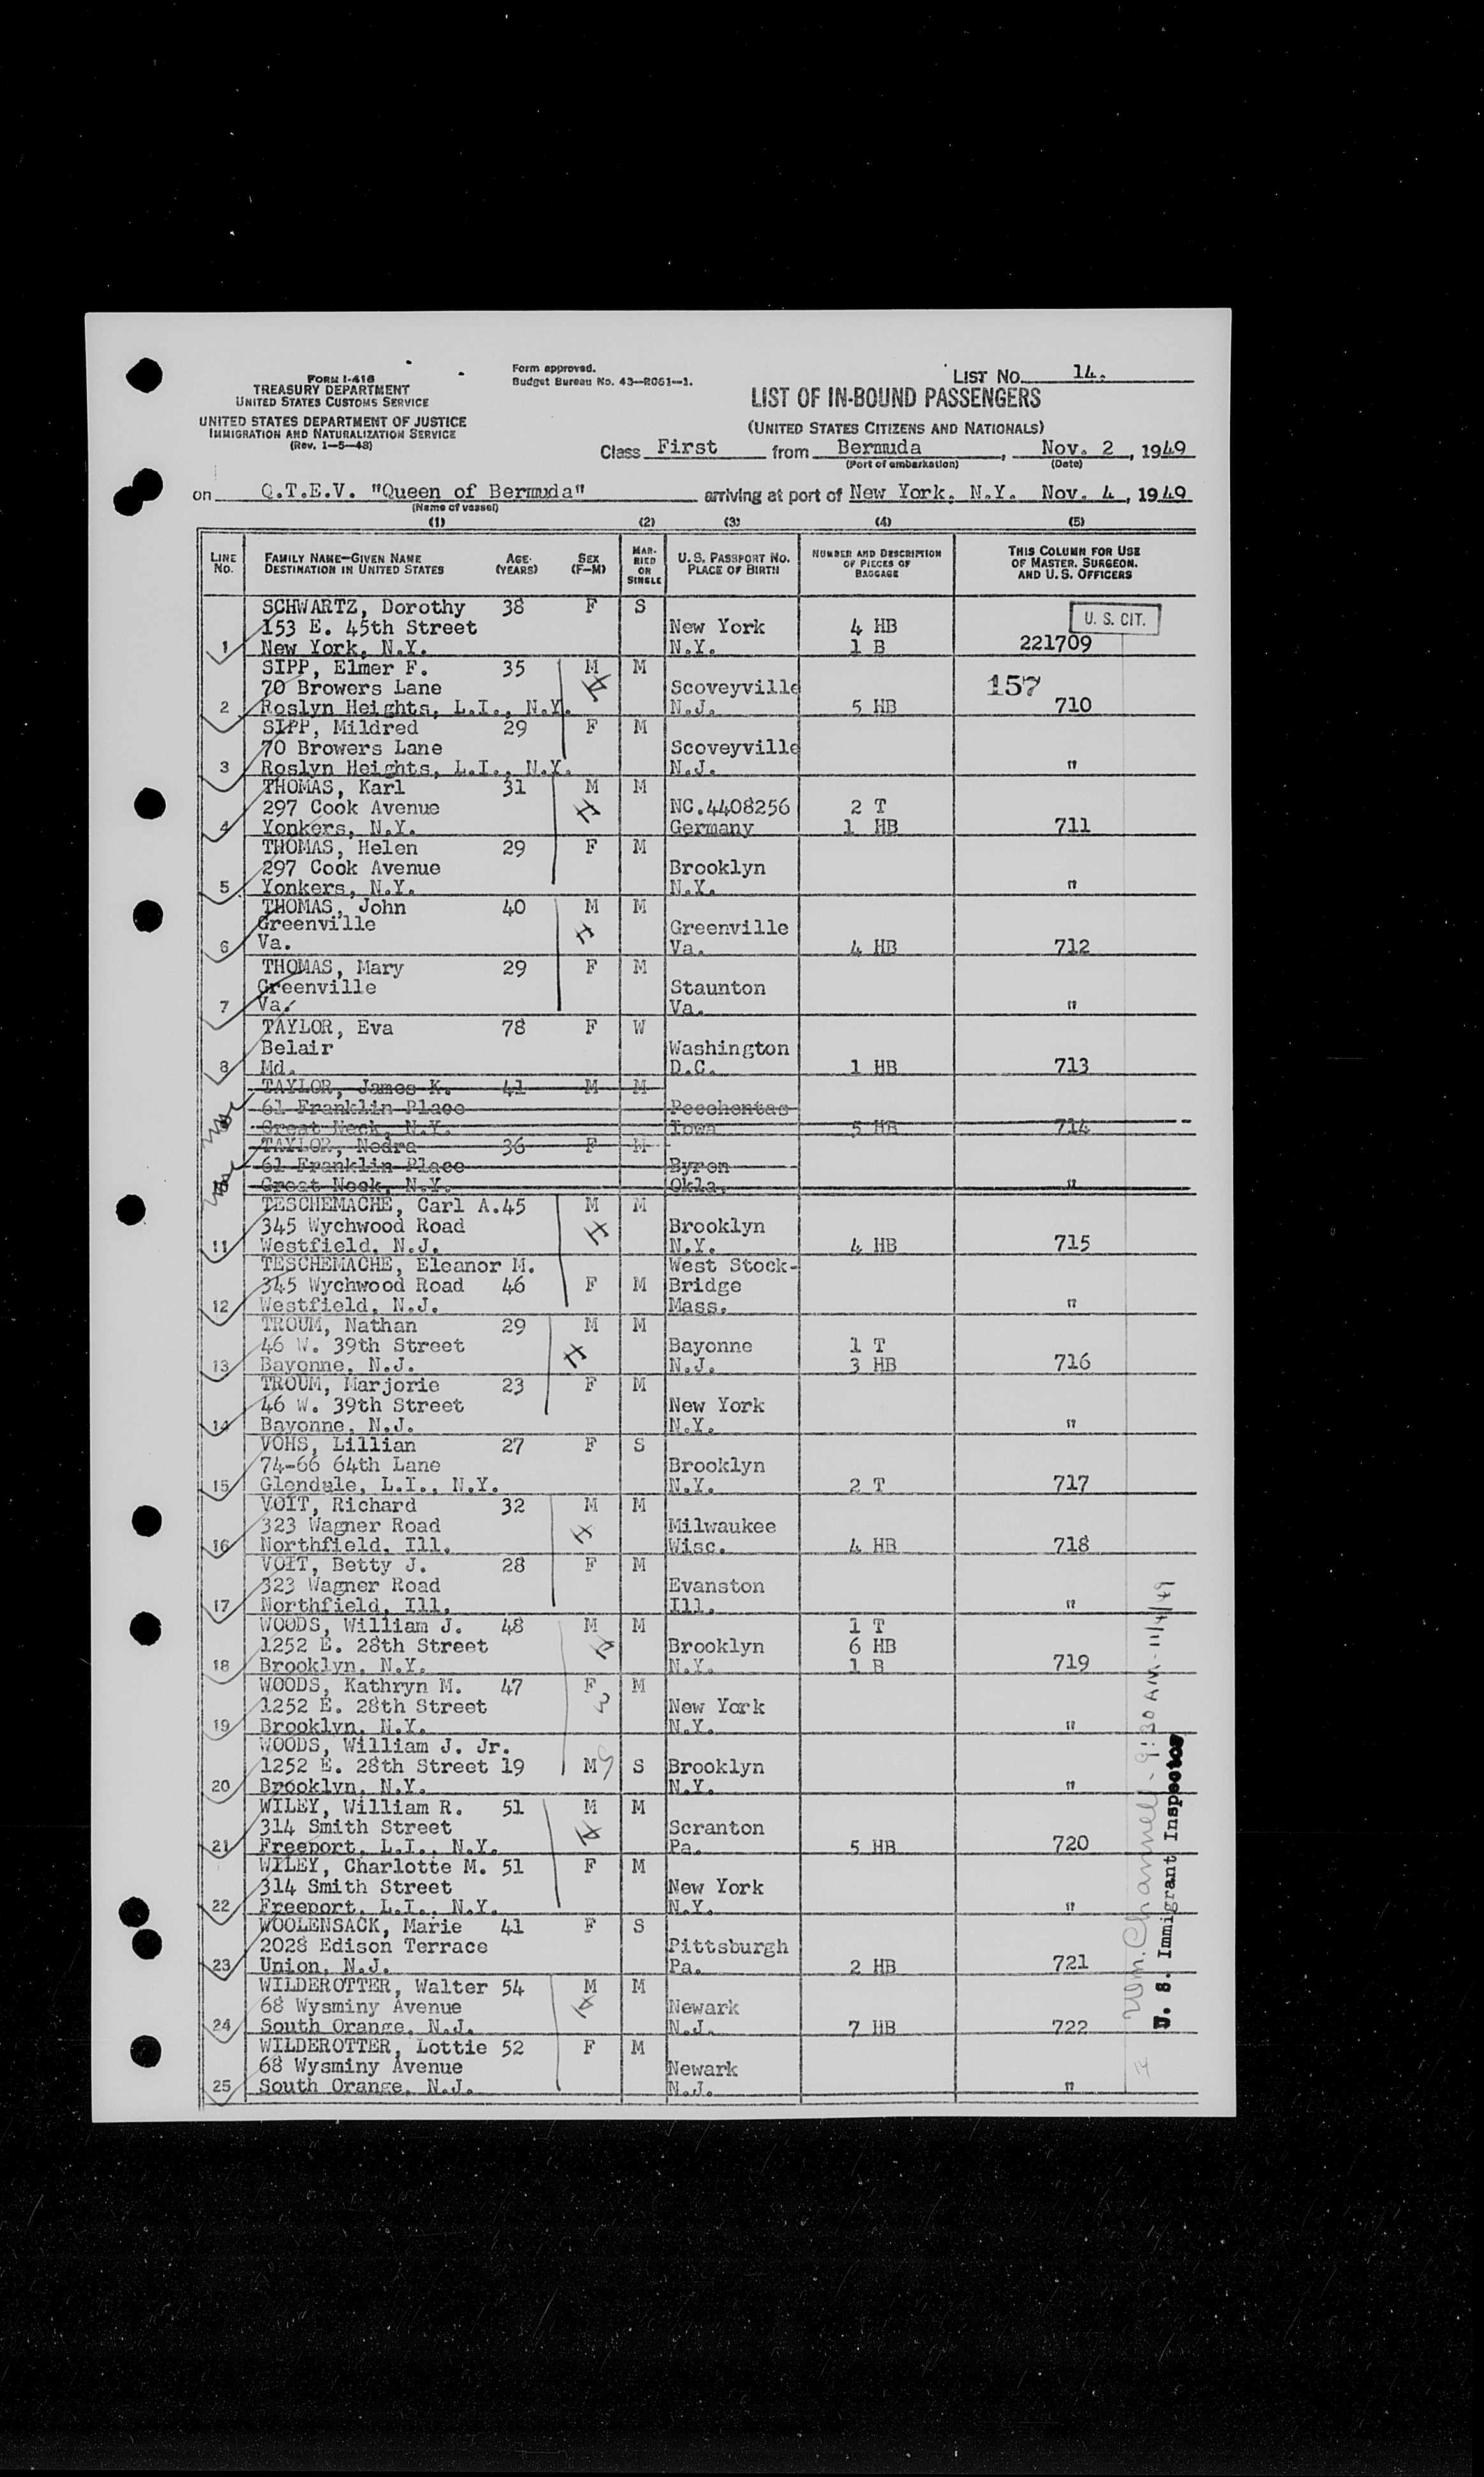 FORM I-416
TREASURY DEPARTMENT
UNITED STATES CUSTOMS SERVICE
UNITED STATES DEPARTMENT OF JUSTICE
IMMIGRATION AND NATURALIZATION SERVICE
(Rev. 1-5-48)
Form approved.
Budget Bureau No. 43-R061-1.
LIST NO. 14.
LIST OF IN-BOUND PASSENGERS
(UNITED STATES CITIZENS AND NATIONALS)
Class First from Bermuda, Nov. 2, 1949
(Port of embarkation) (Date)
on Q.T.E.V. "Queen of Bermuda" arriving at port of New York, N.Y. Nov. 4, 1949
(Name of vessel)
(1) (2) (3) (4) (5)
LINE NO. FAMILY NAME-GIVEN NAME DESTINATION IN UNITED STATES AGE (YEARS) SEX (F-M) MARRIED OR SINGLE U.S. PASSPORT NO. PLACE OF BIRTH NUMBER AND DESCRIPTION OF PIECES OF BAGGAGE THIS COLUMN FOR USE OF MASTER, SURGEON, AND U.S. OFFICERS
SCHWARTZ, Dorothy 38 F S U. S. CIT.
153 E. 45th Street New York 4 HB
1 New York, N.Y. N.Y. 1 B 221709
SIPP, Elmer F. 35 M M
70 Browers Lane Scoveyville 157
2 Roslyn Heights, L.I., N.Y. N.J. 5 HB 710
SIPP, Mildred 29 F M
70 Browers Lane Scoveyville
3 Roslyn Heights, L.I., N.Y. N.J. "
THOMAS, Karl 31 M M
297 Cook Avenue NC.4408256 2 T
4 Yonkers, N.Y. Germany 1 HB 711
THOMAS, Helen 29 F M
297 Cook Avenue Brooklyn
5 Yonkers, N.Y. N.Y. "
THOMAS, John 40 M M
Greenville Greenville
6 Va. Va. 4 HB 712
THOMAS, Mary 29 F M
Greenville Staunton
7 Va. Va. "
TAYLOR, Eva 78 F W
Belair Washington
8 Md. D.C. 1 HB 713
TAYLOR, James K. 41 M M
61 Franklin Place Pocohontas
Great Neck, N.Y. Iowa 5 HB 714
TAYLOR, Nedra 36 F M
61 Franklin Place Byron
Great Neck, N.Y. Okla. "
TESCHEMACHE, Carl A. 45 M M
345 Wychwood Road Brooklyn
11 Westfield, N.J. N.Y. 4 HB 715
TESCHEMACHE, Eleanor M. West Stock-
345 Wychwood Road 46 F M Bridge
12 Westfield, N.J. Mass. "
TROUM, Nathan 29 M M
46 W. 39th Street Bayonne 1 T
13 Bayonne, N.J. N.J. 3 HB 716
TROUM, Marjorie 23 F M
46 W. 39th Street New York
14 Bayonne, N.J. N.Y. "
VOHS, Lillian 27 F S
74-66 64th Lane Brooklyn
15 Glendale, L.I., N.Y. N.Y. 2 T 717
VOIT, Richard 32 M M
323 Wagner Road Milwaukee
16 Northfield, Ill. Wisc. 4 HB 718
VOIT, Betty J. 28 F M
323 Wagner Road Evanston
17 Northfield, Ill. Ill. "
WOODS, William J. 48 M M 1 T
1252 E. 28th Street Brooklyn 6 HB
18 Brooklyn, N.Y. N.Y. 1 B 719
WOODS, Kathryn M. 47 F M
1252 E. 28th Street New York
19 Brooklyn, N.Y. N.Y. "
WOODS, William J. Jr.
1252 E. 28th Street 19 M S Brooklyn
20 Brooklyn, N.Y. N.Y. "
WILEY, William R. 51 M M
314 Smith Street Scranton
21 Freeport, L.I., N.Y. Pa. 5 HB 720
WILEY, Charlotte M. 51 F M
314 Smith Street New York
22 Freeport, L.I., N.Y. N.Y. "
WOOLENSACK, Marie 41 F S
2028 Edison Terrace Pittsburgh
23 Union, N.J. Pa. 2 HB 721
WILDEROTTER, Walter 54 M M
68 Wysminy Avenue Newark
24 South Orange, N.J. N.J. 7 HB 722
WILDEROTTER, Lottie 52 F M
68 Wysminy Avenue Newark
25 South Orange, N.J. N.J. "
Wm. Channell - 9:30 AM - 11/4/49
U. S. Immigrant Inspector